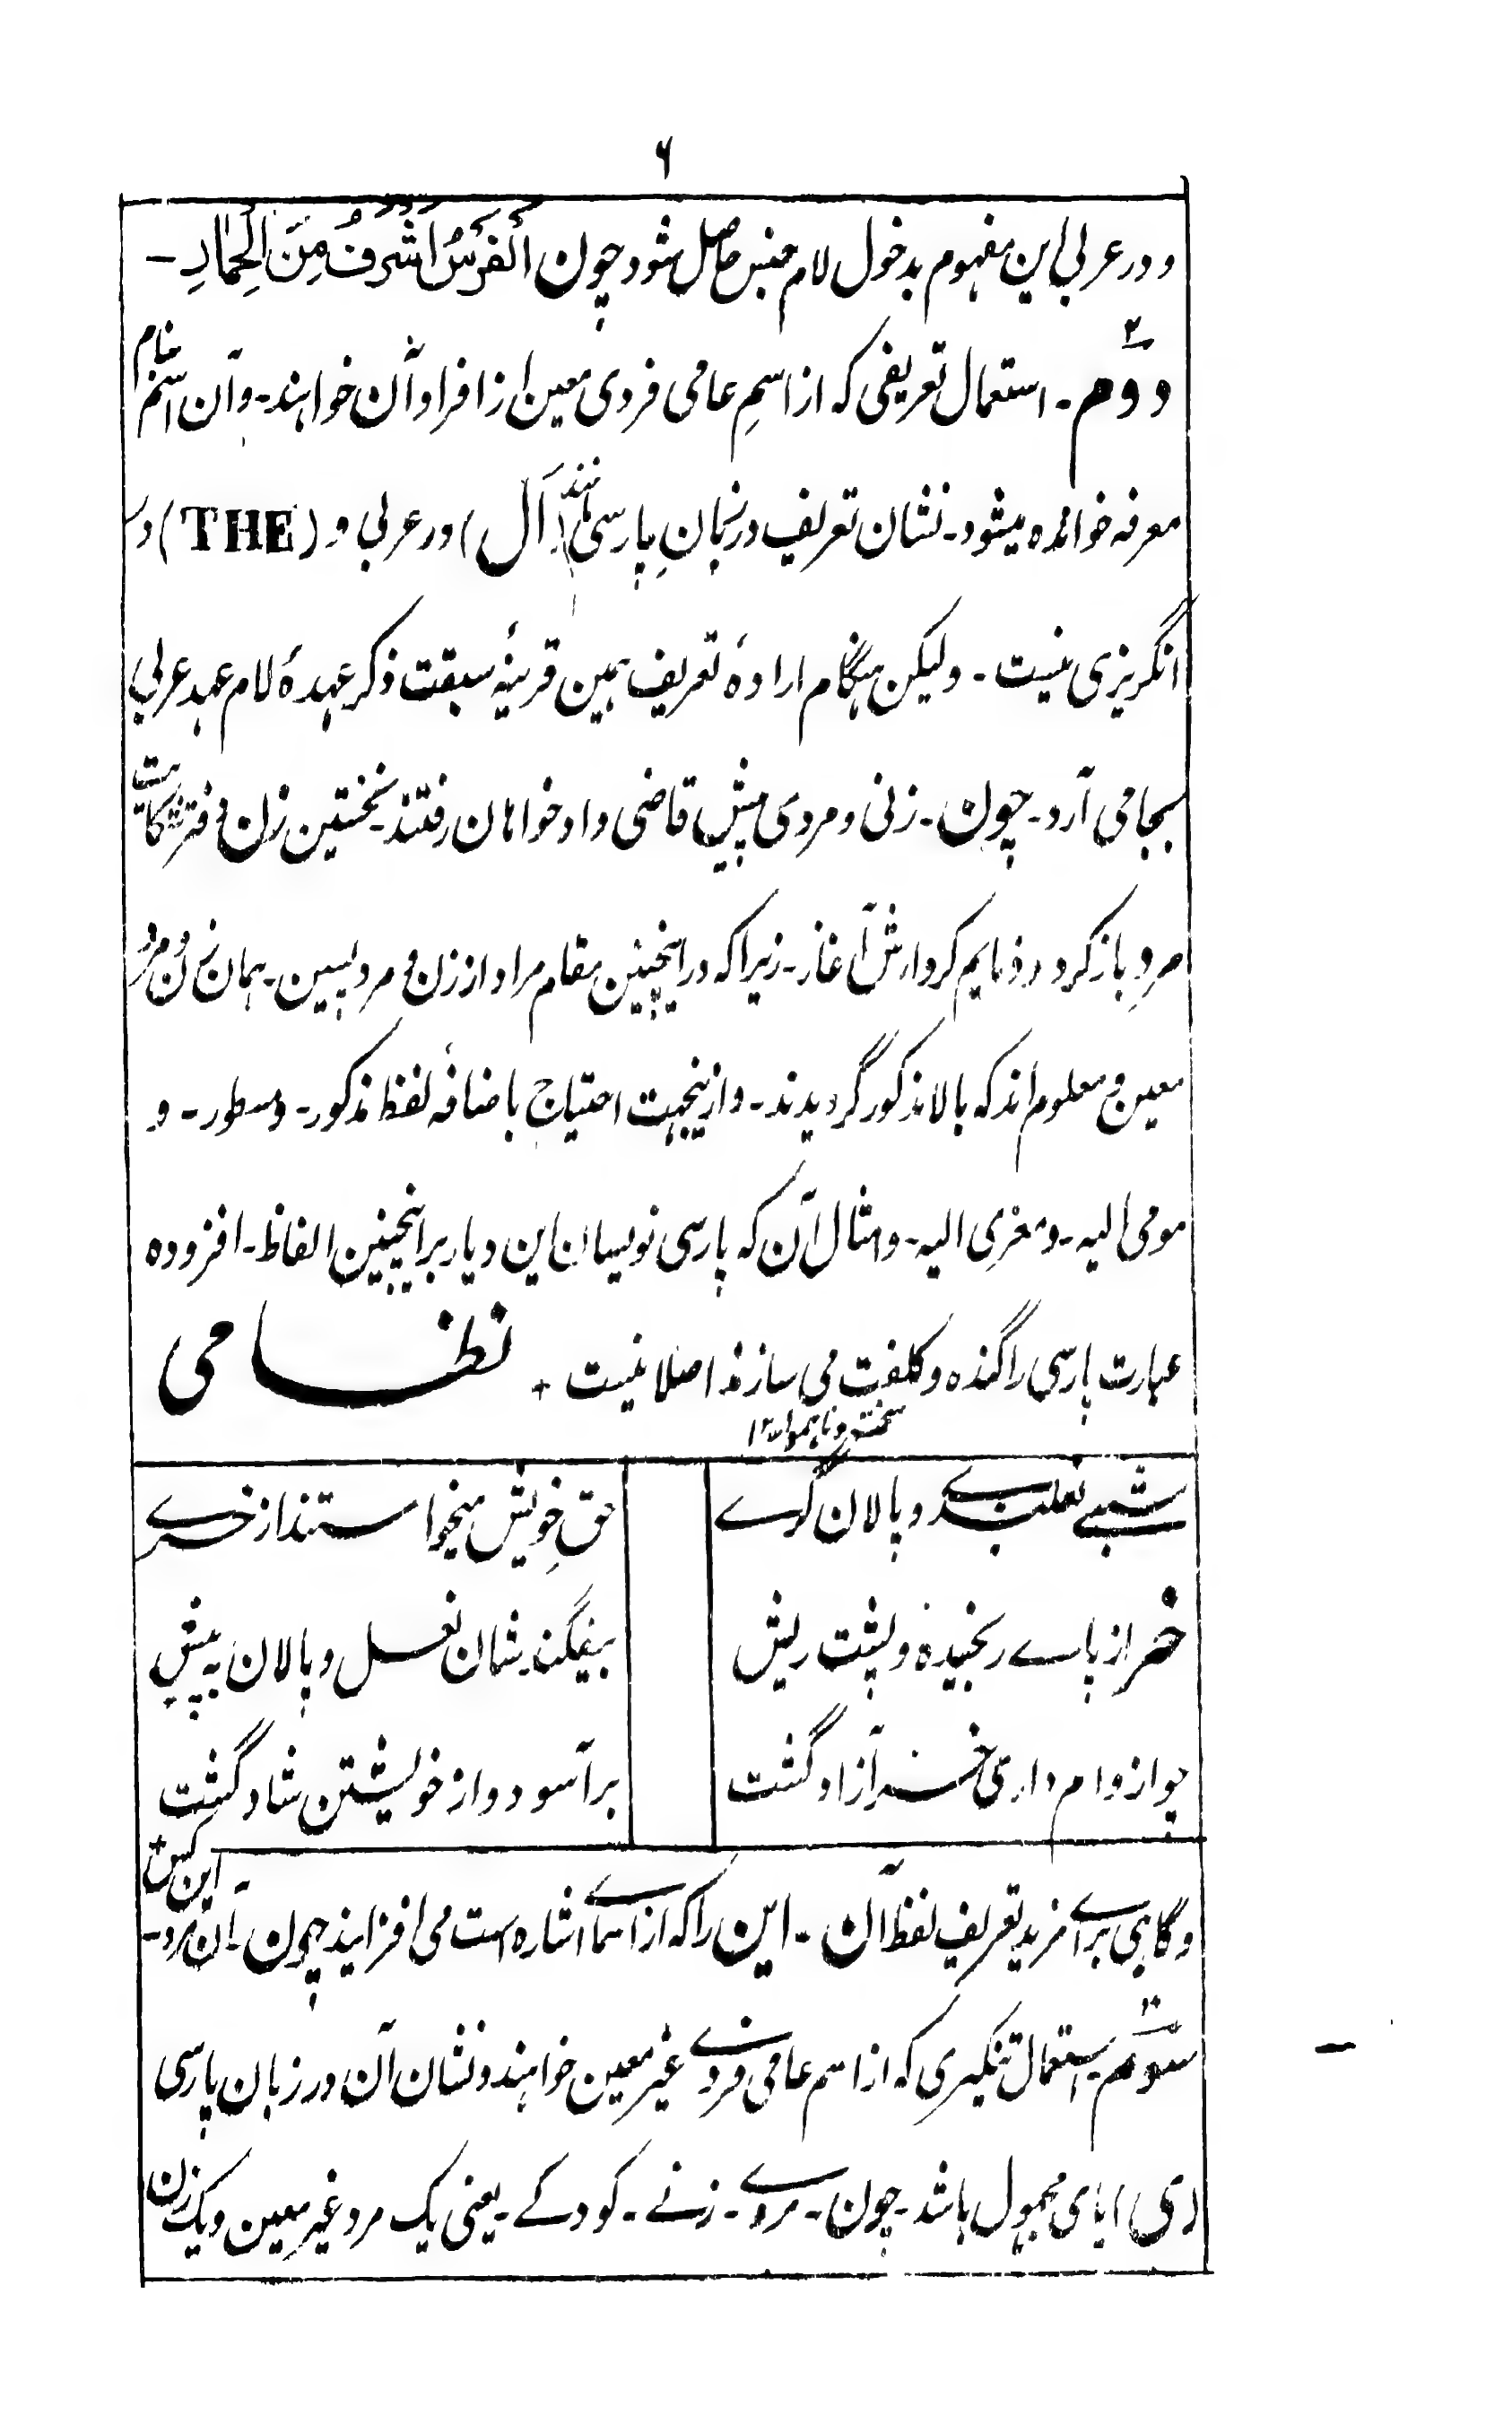 ۶
و در عربی این مفهوم بدخول لام جنس حاصل شود چون اَلْفَرَسُ اَشْرَفُ مِنَ الْحِمَارِ -
۲
دوم - استعمال تعریفی که از اسمِ عامی فردی معین از افراد آن خواهند - و آن اسم بنام
معرفه خوانده میشود - نشان تعریف در زبانِ پارسی مانند (اَل) در عربی و (THE) در
انگریزی نیست - ولیکن هنگام ارادهٔ تعریف همین قرینهٔ سبقت ذکر عهدهٔ لام عهد عربی
بجا می آرد - چون - زنی و مردی پیش قاضی دادخواهان رفتند - نخستین زن دفتر شکایت
مردِ باز کرد ذمایم کردارش آغاز - زیرا که در اینچنین مقام مراد از زن و مرد پسین - همان زن و مرد
معین و معلوم اند که بالا مذکور گردیدند - و ازینجهت احتیاج باضافهٔ لفظ مذکور - و مسطور - و
مومی الیه - و معزی الیه - و امثال آن که پارسی نویسان این دیار بر اینچنین الفاظ - افزوده
عبارت پارسی را گنده و کلفت می سازند اصلا نیست + نظامی
سخت و ناهموار ۱۲
شبے نعلبندے و پالان گرے
حقِ خویش میخواستند از خرے
خر از پاے رنجیده و پشت ریش
بیفگند شان نعل و پالان به پیش
چو از وام داری خر آزاد گشت
بر آسود و از خویشتن شاد گشت
و گاهی براے مزید تعریف لفظ آن - این را که از اسماے اشاره است می افزایند چون - آن مرد - این کس
۳
سوم - استعمال تنکیری که از اسم عامی فردے غیر معین خواهند و نشان آن در زبان پارسی
(ی) یای مجهول باشد - چون - مردے - زنے - کودکے - یعنی یک مرد غیر معین و یک زن